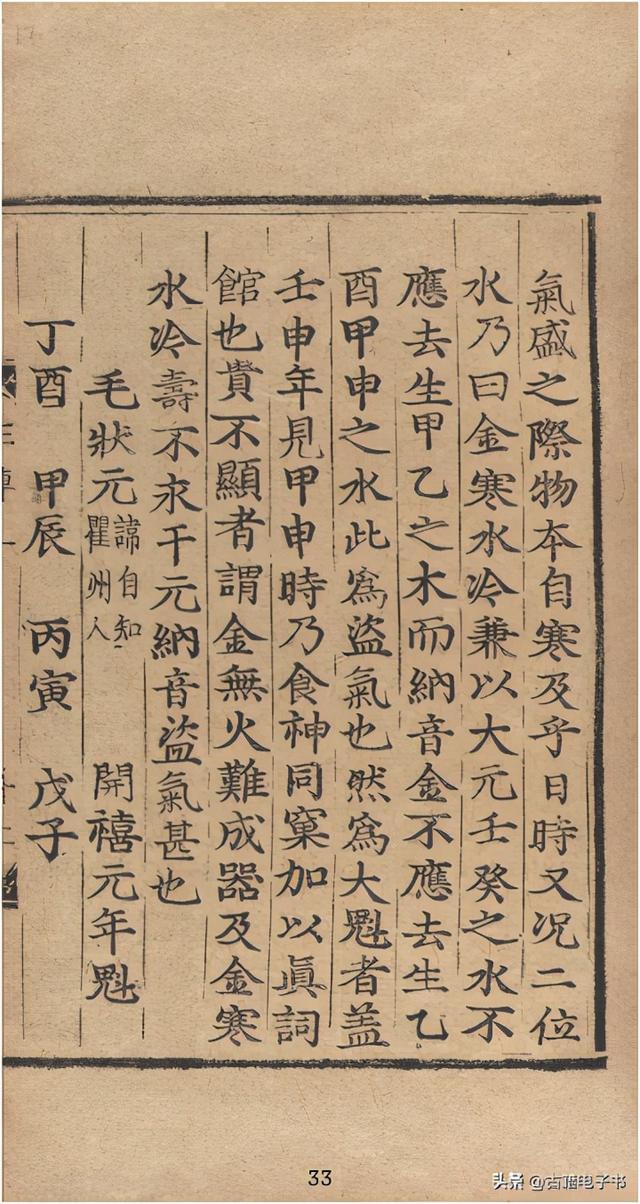 氣盛之際物本自寒及乎日時又况二位
水乃曰金寒水冷兼以大元壬癸之水不
應去生甲乙之木而納音金不應去生乙
酉甲申之水此爲盜氣也然爲大魁者盖
壬申年見甲申時乃食神同窠加以眞詞
館也貴不顯者謂金無火難成器及金寒
水冷壽不永干元納音盜氣甚也
毛狀元諱自知瞿州人 開禧元年魁
丁酉 甲辰 丙寅 戊子
33
头条 @古猫电子书